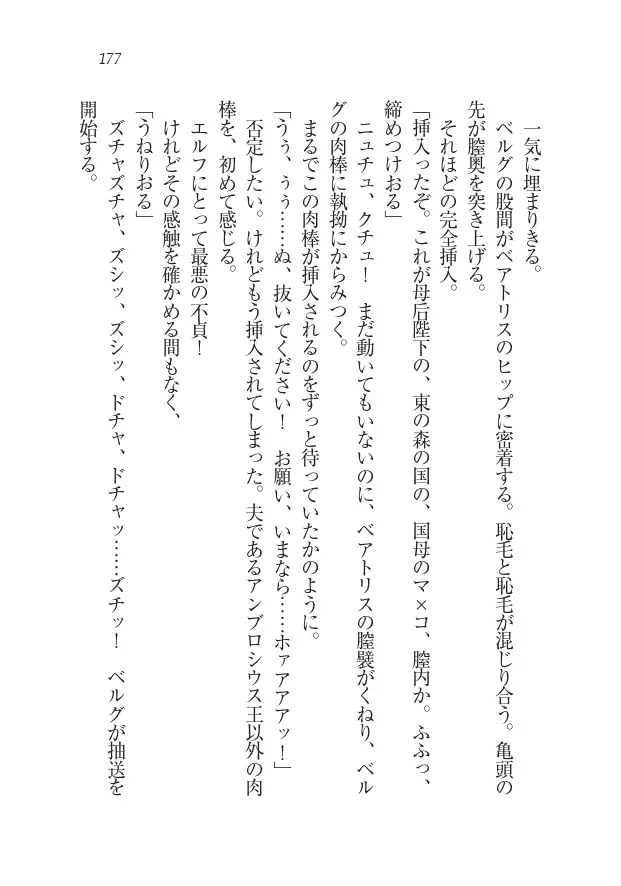 177
一気に埋まりきる。
ベルグの股間がベアトリスのヒップに密着する。恥毛と恥毛が混じり合う。亀頭の
先が膣奥を突き上げる。
それほどの完全挿入。
「挿入ったぞ。これが母后陛下の、東の森の国の、国母のマ×コ、膣内か。ふふっ、
締めつけおる」
ニュチュ、クチュ！　まだ動いてもいないのに、ベアトリスの膣襞がくねり、ベル
グの肉棒に執拗にからみつく。
まるでこの肉棒が挿入されるのをずっと待っていたかのように。
「うぅ、うぅ……ぬ、抜いてください！　お願い、いまなら……ホァアアアッ！」
否定したい。けれどもう挿入されてしまった。夫であるアンブロシウス王以外の肉
棒を、初めて感じる。
エルフにとって最悪の不貞！
けれどその感触を確かめる間もなく、
「うねりおる」
ズチャズチャ、ズシッ、ズシッ、ドチャ、ドチャッ……ズチッ！　ベルグが抽送を
開始する。